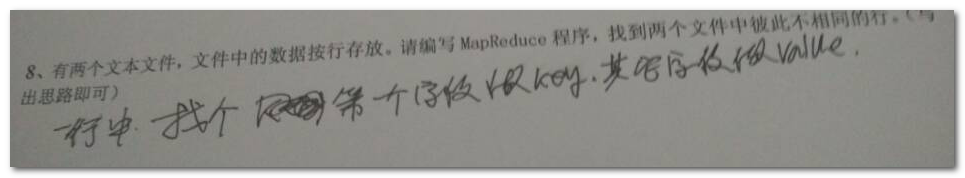 8、有两个文本文件，文件中的数据按行存放。请编写 MapReduce 程序，找到两个文件中彼此不相同的行。（写
出思路即可）
一行中 找个 第一个字段做key，其它字段做value.